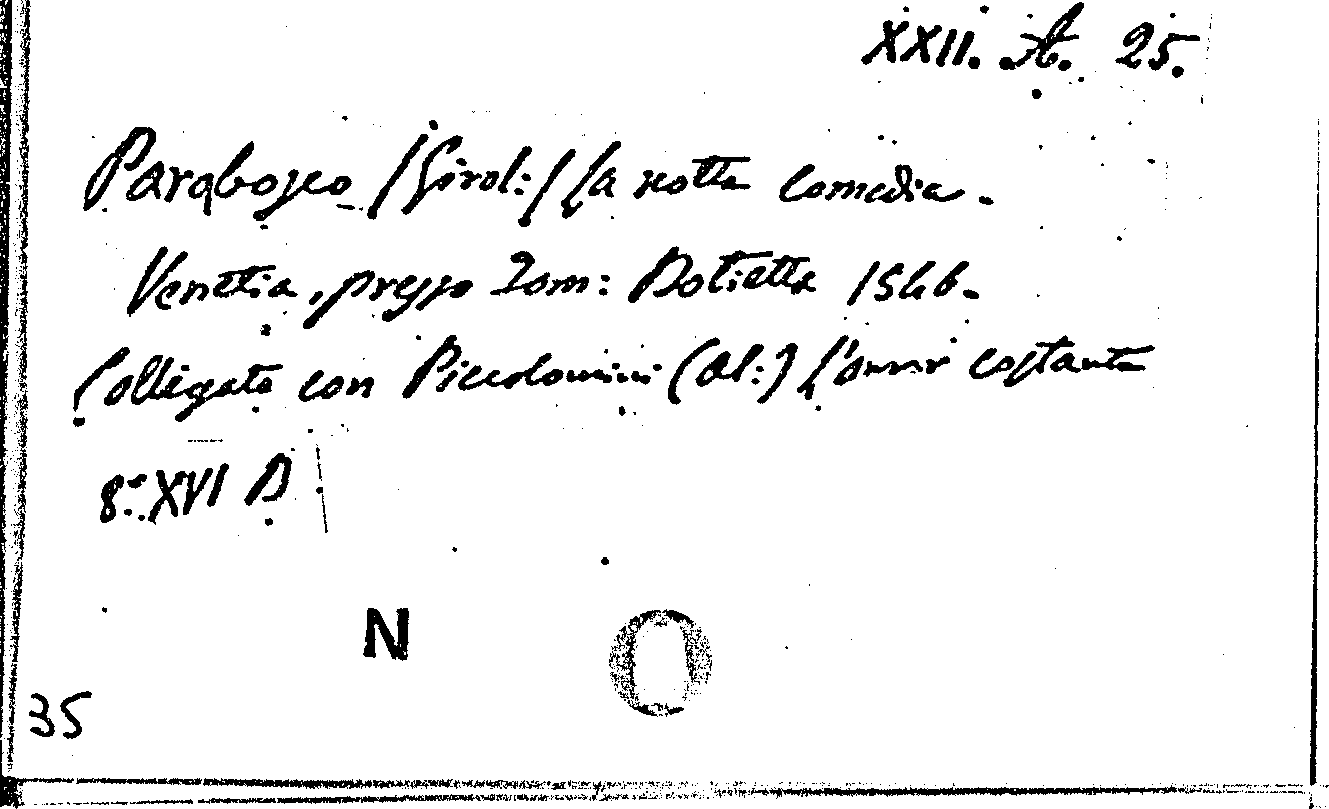 XXII. A. 25.
Parabosco /Girol:/ la notte Comedia.
Venetia, presso Tom: Botietta 1546.
Colligato con Piccolomini (Al:) L'amor costante
8.° XVI B
N O
35